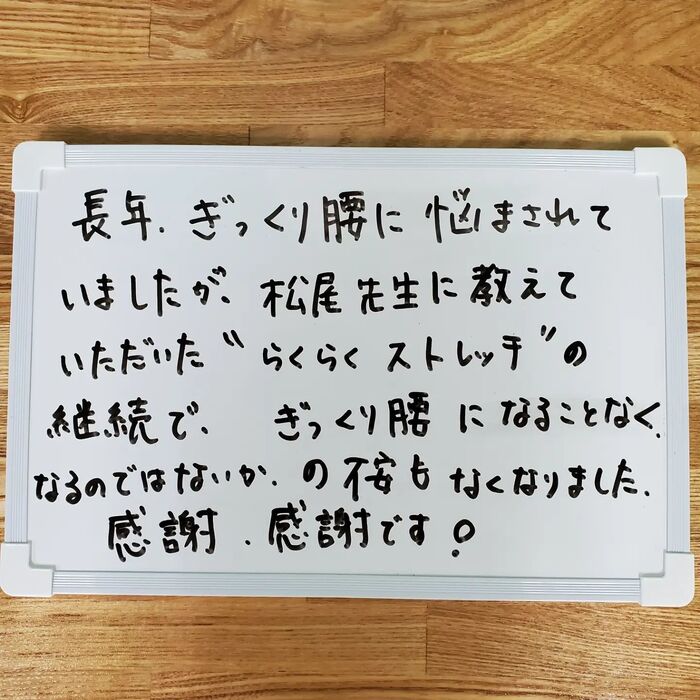 長年、ぎっくり腰に悩まされて
いましたが、松尾先生に教えて
いただいた“らくらくストレッチ”の
継続で、ぎっくり腰になることなく、
なるのではないか、の不安も なくなりました。
感謝、感謝です!